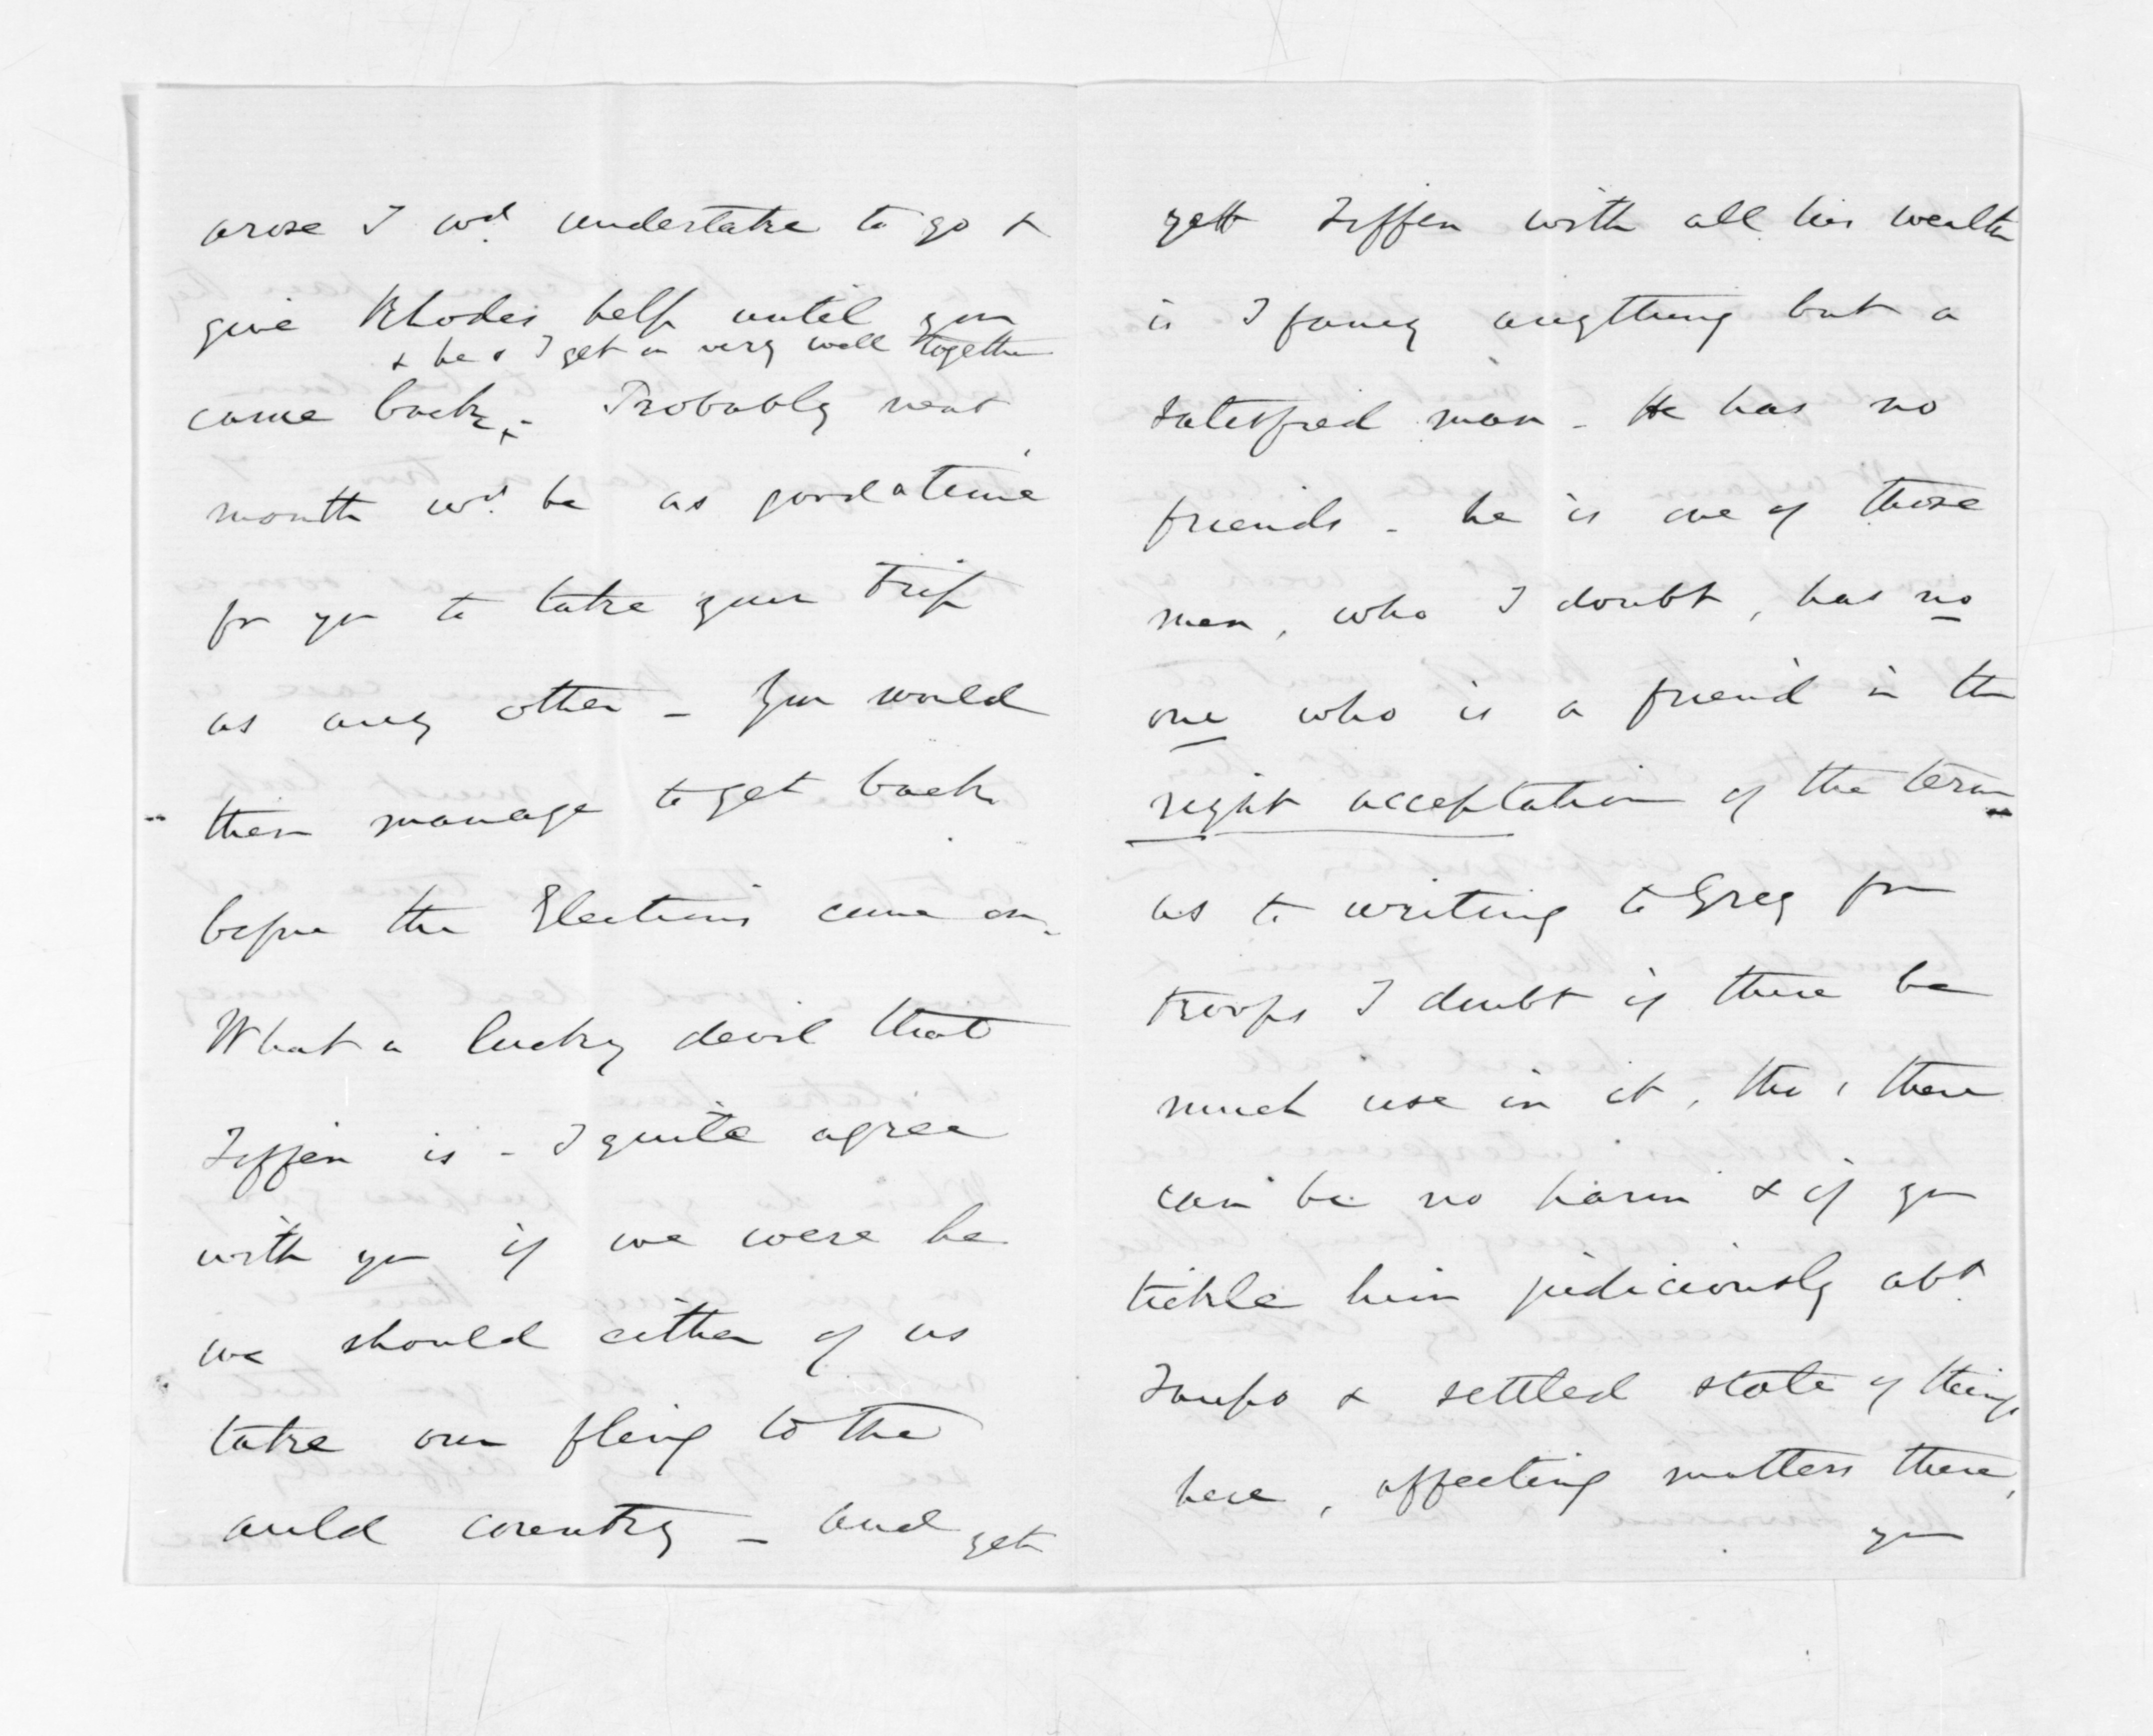 arose I wd. undertake to go &
give Rhodes help until you
& he & I get on very well together
came back. - Probably next
month wd. be as good a time
for you to take your trip
as any other - You would
then manage to get back
before the Elections come on.
What a lucky devil that
Tiffen is - I quite agree
with you if we were he
we should either of us
take our fling to the
auld country - and yet
yett Tiffen with all his wealth
is I fancy anything but a
satisfied man - He has no
friends - he is one of those
men, who I doubt, has no
one who is a friend in the
right acceptation of the term
as to writing to Grey for
troops I doubt if there be
much use in it, tho' there
can be no harm & if you
tickle him judiciously abt.
Taupo & settled state of things
here, affecting matters there,
you